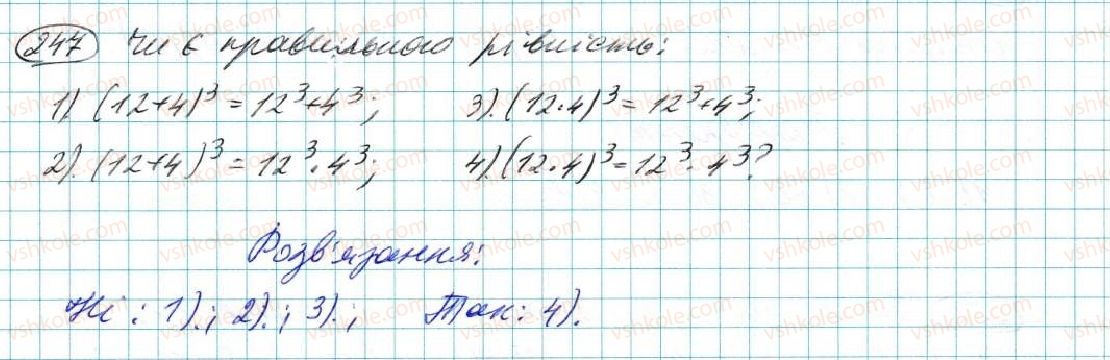 247 Чи є правильною рівність:
1) (12+4)³ = 12³+4³; 3). (12·4)³ = 12³+4³;
2). (12+4)³ = 12³·4³; 4). (12·4)³ = 12³·4³?
Розв'язання:
Ні: 1).; 2).; 3).; Так: 4).